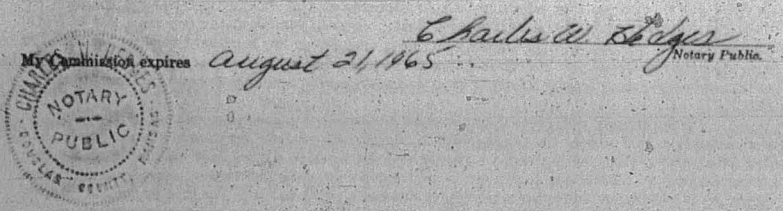 Charles W. Hedges
Notary Public.
My Commission expires August 21, 1965
CHARLES W. HEDGES
NOTARY
PUBLIC
DOUGLAS COUNTY, KANSAS